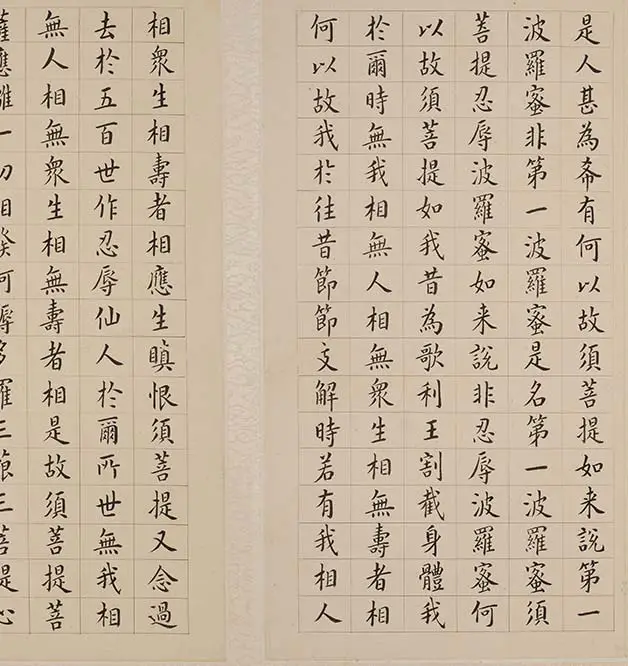 是人甚為希有何以故須菩提如来說第一
波羅蜜非第一波羅蜜是名第一波羅蜜須
菩提忍辱波羅蜜如来說非忍辱波羅蜜何
以故須菩提如我昔為歌利王割截身體我
於爾時無我相無人相無衆生相無壽者相
何以故我於往昔節節支解時若有我相人
相衆生相壽者相應生瞋恨須菩提又念過
去於五百世作忍辱仙人於爾所世無我相
無人相無衆生相無壽者相是故須菩提菩
薩應離一切相發阿耨多羅三藐三菩提心